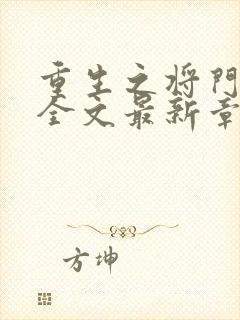 重生之将门
全文最新章
方坤